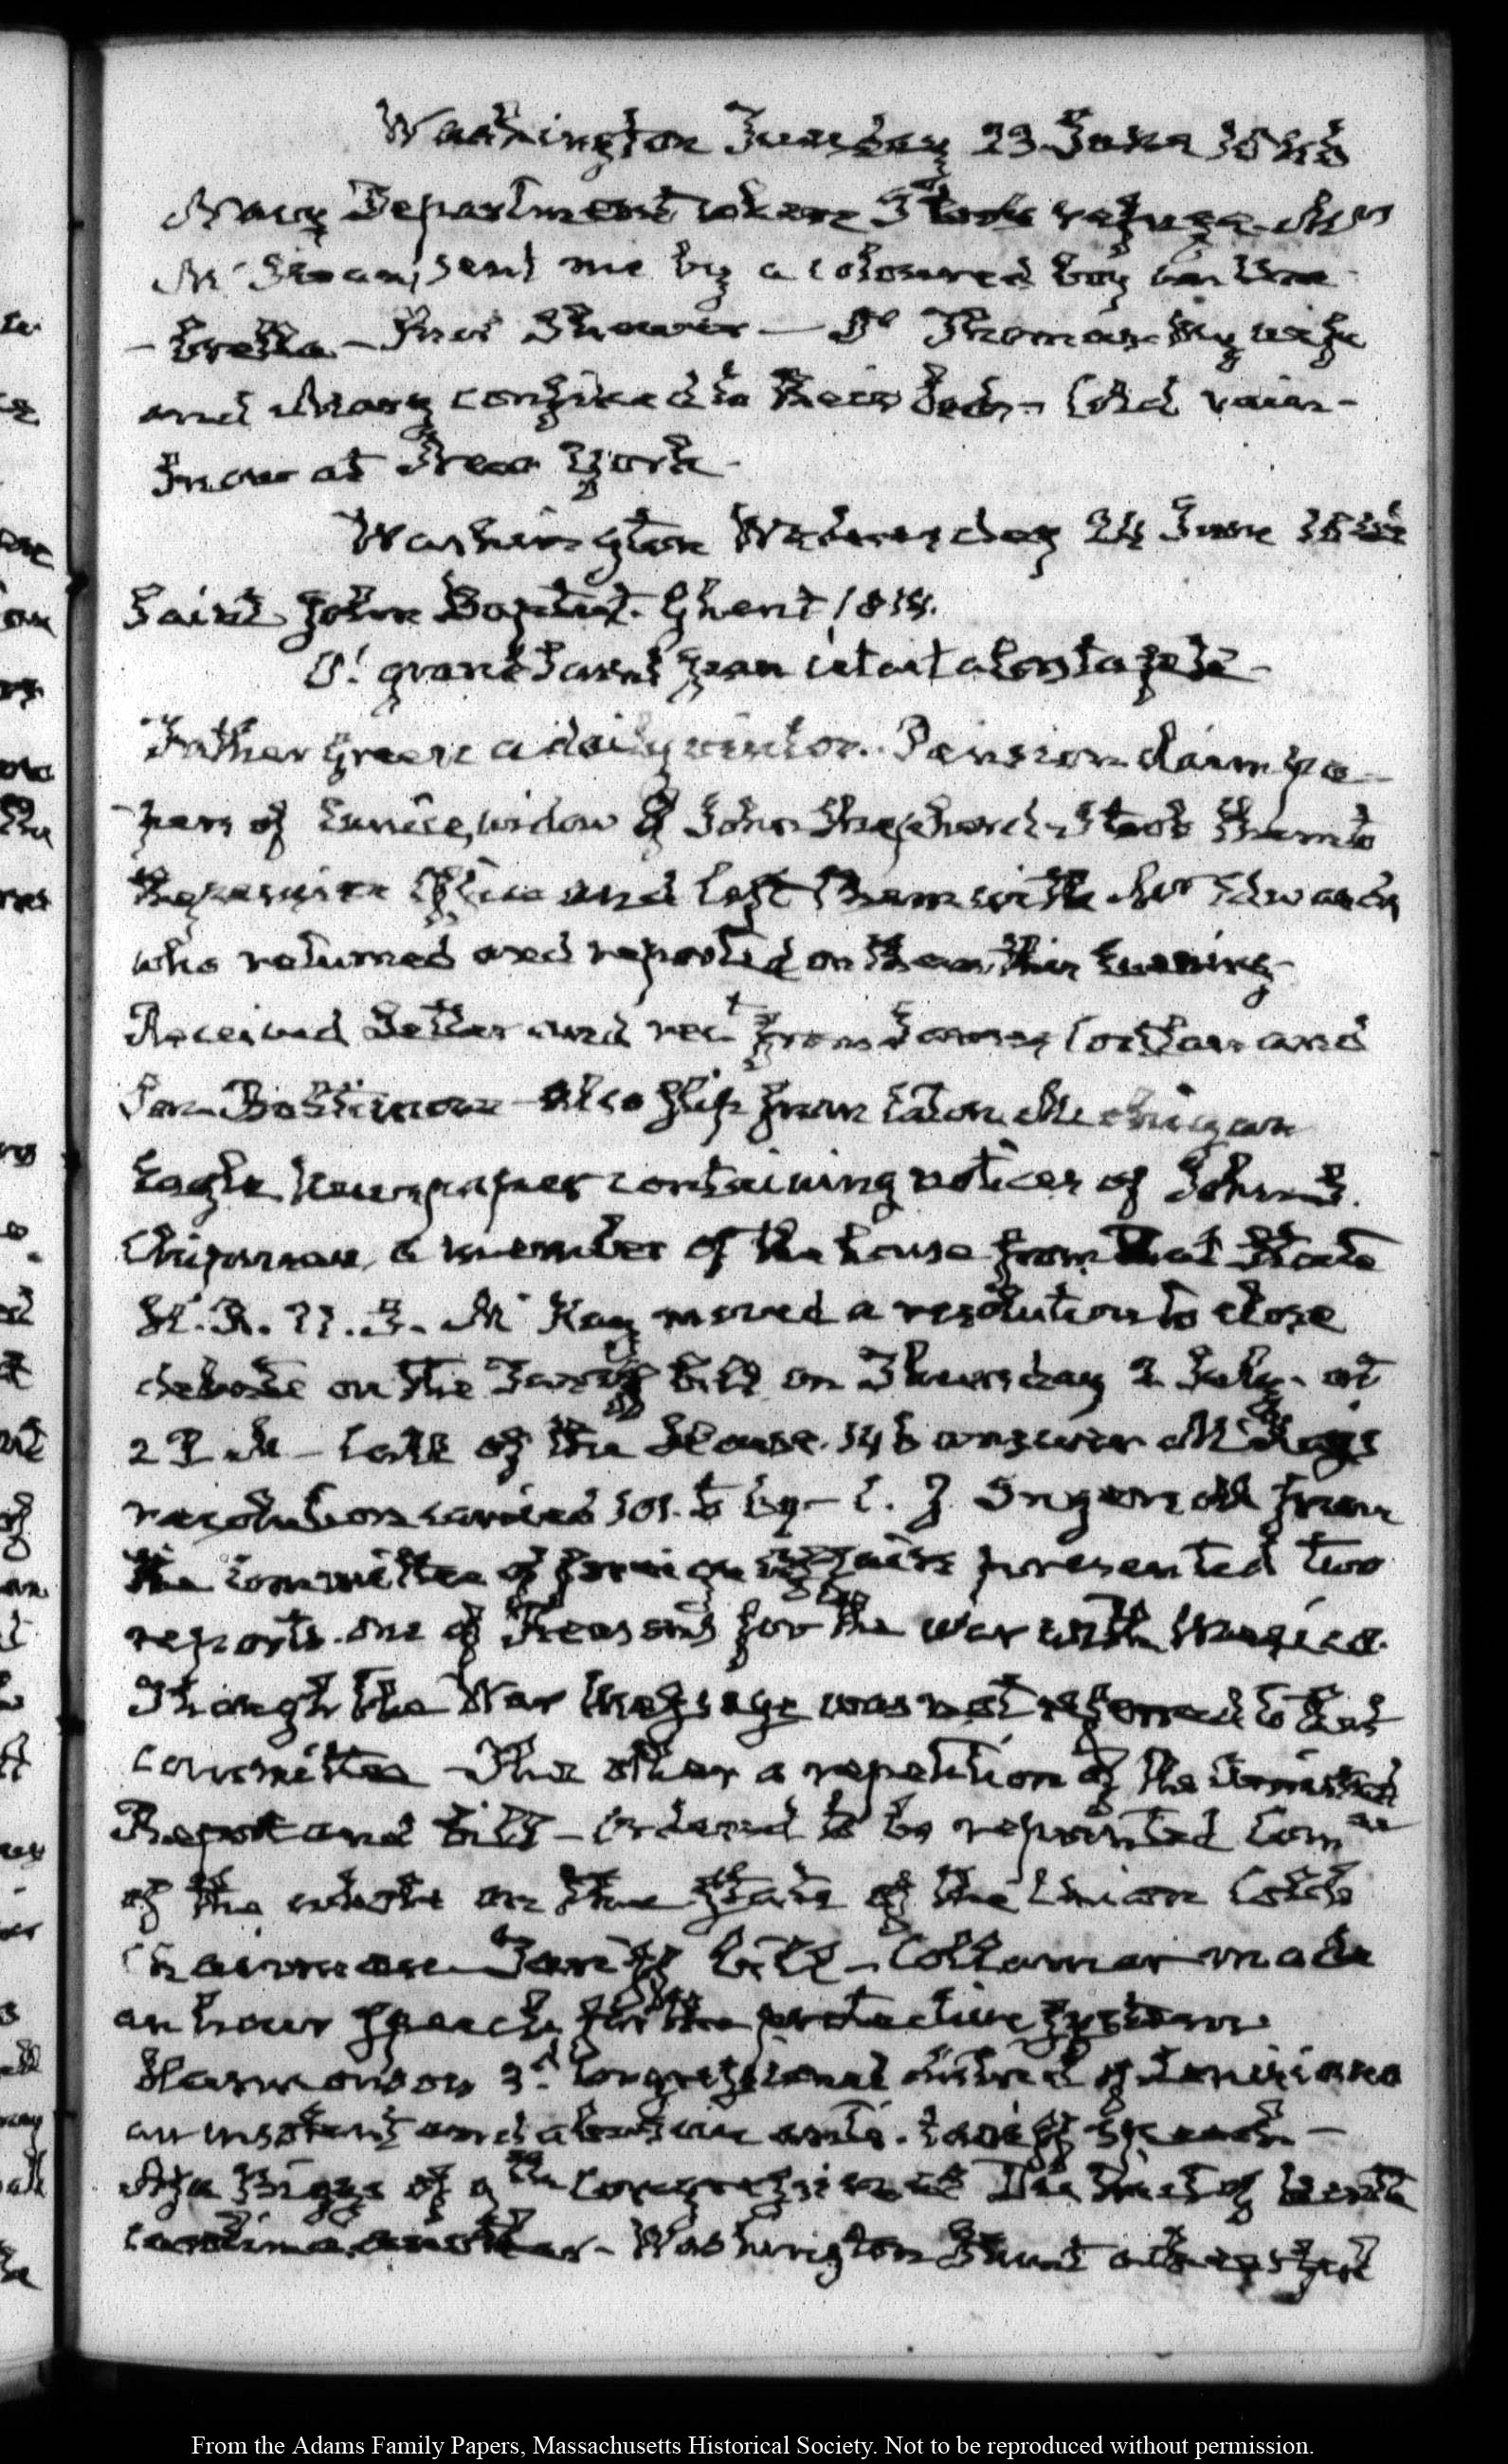 Washington Tuesday 23 June 1846
Navy Department where I took refuge. Mr
McLean, sent me by a coloured boy an Um-
-brella — Thomas my wife
and Mary confined to their beds — Cold rain
Snow at New York.
Washington Wednesday 24 June 1846
Saint John Baptist. Ghent 1814.
O! grand Saint Jean c'etait alors ta fete —
Father Greene a daily visitor. Pension claim pa-
-pers of Eunice, widow of John Shepherd — I took them to
the pension Office and left them with Mr Edwards
who returned and reported on them this Evening —
Received Letter and rect from James Cortlan and
Son Baltimore — also slip from Eaton Michigan
Eagle Newspaper containing notices of John S.
Chipman, a member of the house from that State
H. R. U. S. McKay moved a resolution to close
debate on the Tariff bill on Thursday 2 July at
2 P.M — Call of the House. 146 answer McKay's
resolution carried by — C. J. Ingersoll from
the Committee of foreign affairs presented two
reports. one of Reasons for the war with Mexico.
Though the War Message was not referred to that
Committee — The other a repetition of the
Report and bill — Ordered to be reprinted Comee
of the whole on the State of the Union Cobb
Chairman — Tariff bill — Collamer made
an hour speech for the protective System
Harmanson 3d. Congressional district of Louisiana
an insolent and abusive anti-tariff speech —
Asa Biggs of 9th Congressional District of North
Carolina another — Washington Hunt